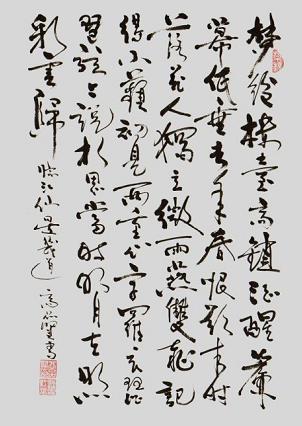 夢後樓臺高鎖酒醒簾
幕低垂去年春恨却來時
落花人獨立微雨燕雙飛記
得小蘋初見兩重心字羅衣琵
琶弦上說相思當時明月在照
彩雲歸
臨江仙晏幾道 高書